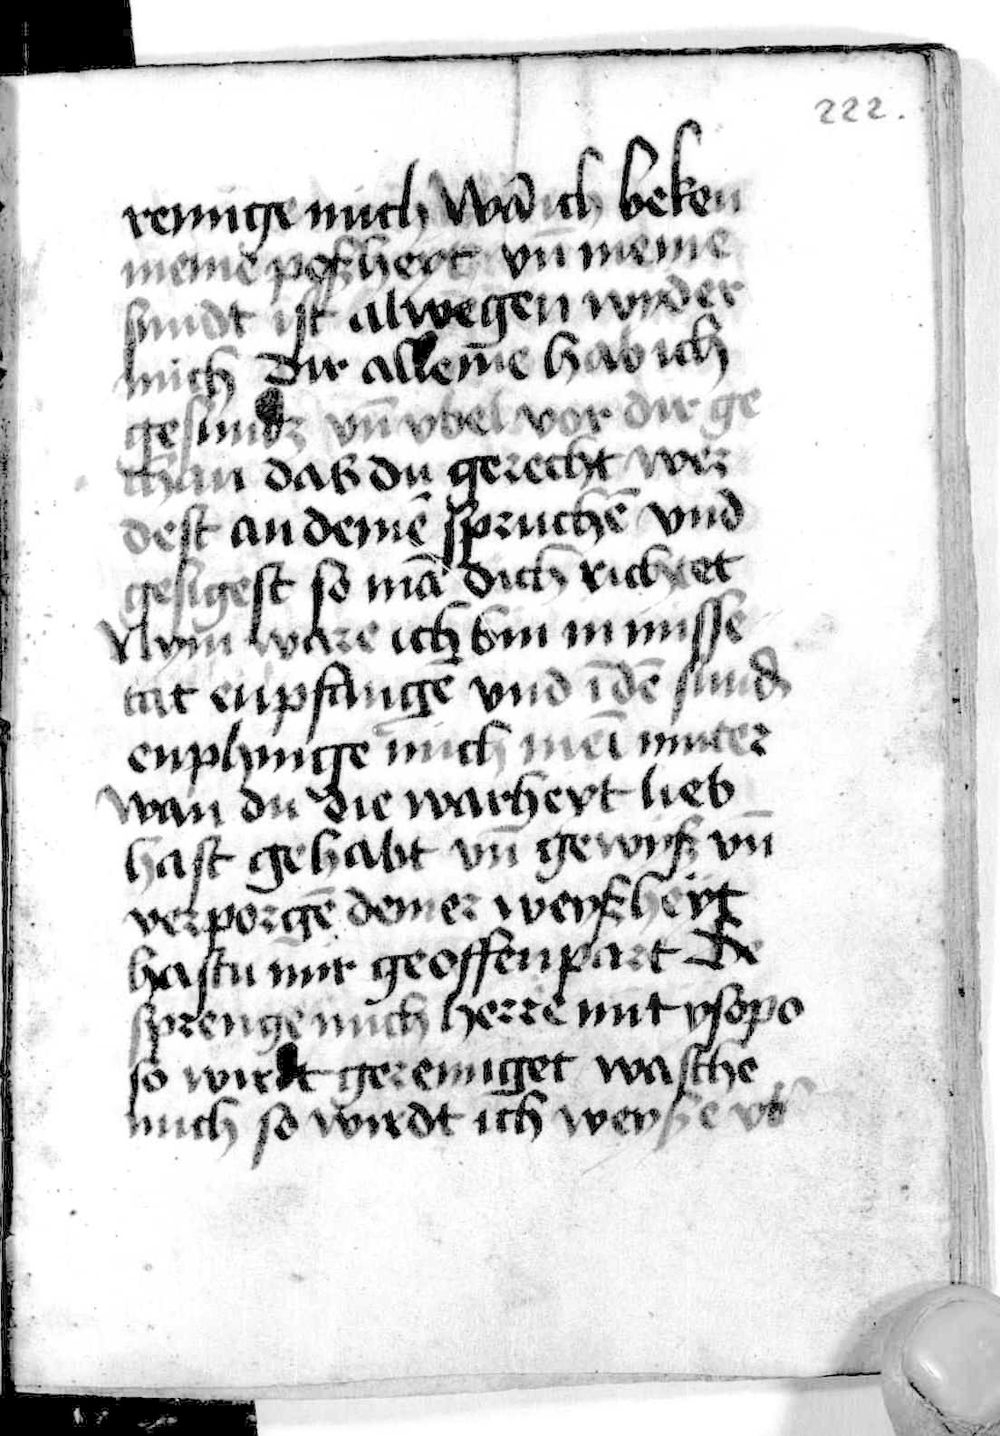 222.
reinige mich Wā ich beken
meine poßheyt vn̄ meine
sundt ist alwegen wider
mich Dir alleīne hab ich
gesundt vn̄ vbel vor dir ge
than daß du gerecht wer
dest an deinē spruchē vnd
gesigest so mā dich richtet
Nym ware ich bin in misse
tat enpfangē vnd ī dē sundē
enphinge mich meī muter
wan du die warheyt lieb
hast gehabt vn̄ gewyß vn̄
verporgē deiner weyßheyt
hastu mir geoffenpart De
sprenge mich herre mit ysopo
so wirdt gereiniget wasche
mich so wirdt ich weyße vb